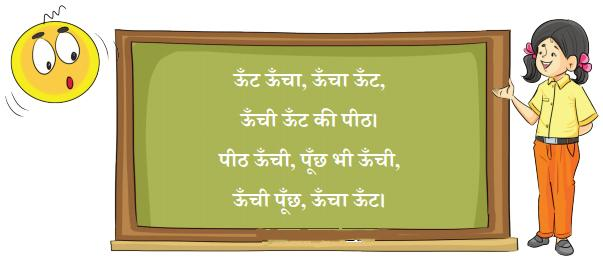 ऊँट ऊँचा, ऊँचा ऊँट,
ऊँची ऊँट की पीठ।
पीठ ऊँची, पूँछ भी ऊँची,
ऊँची पूँछ, ऊँचा ऊँट।